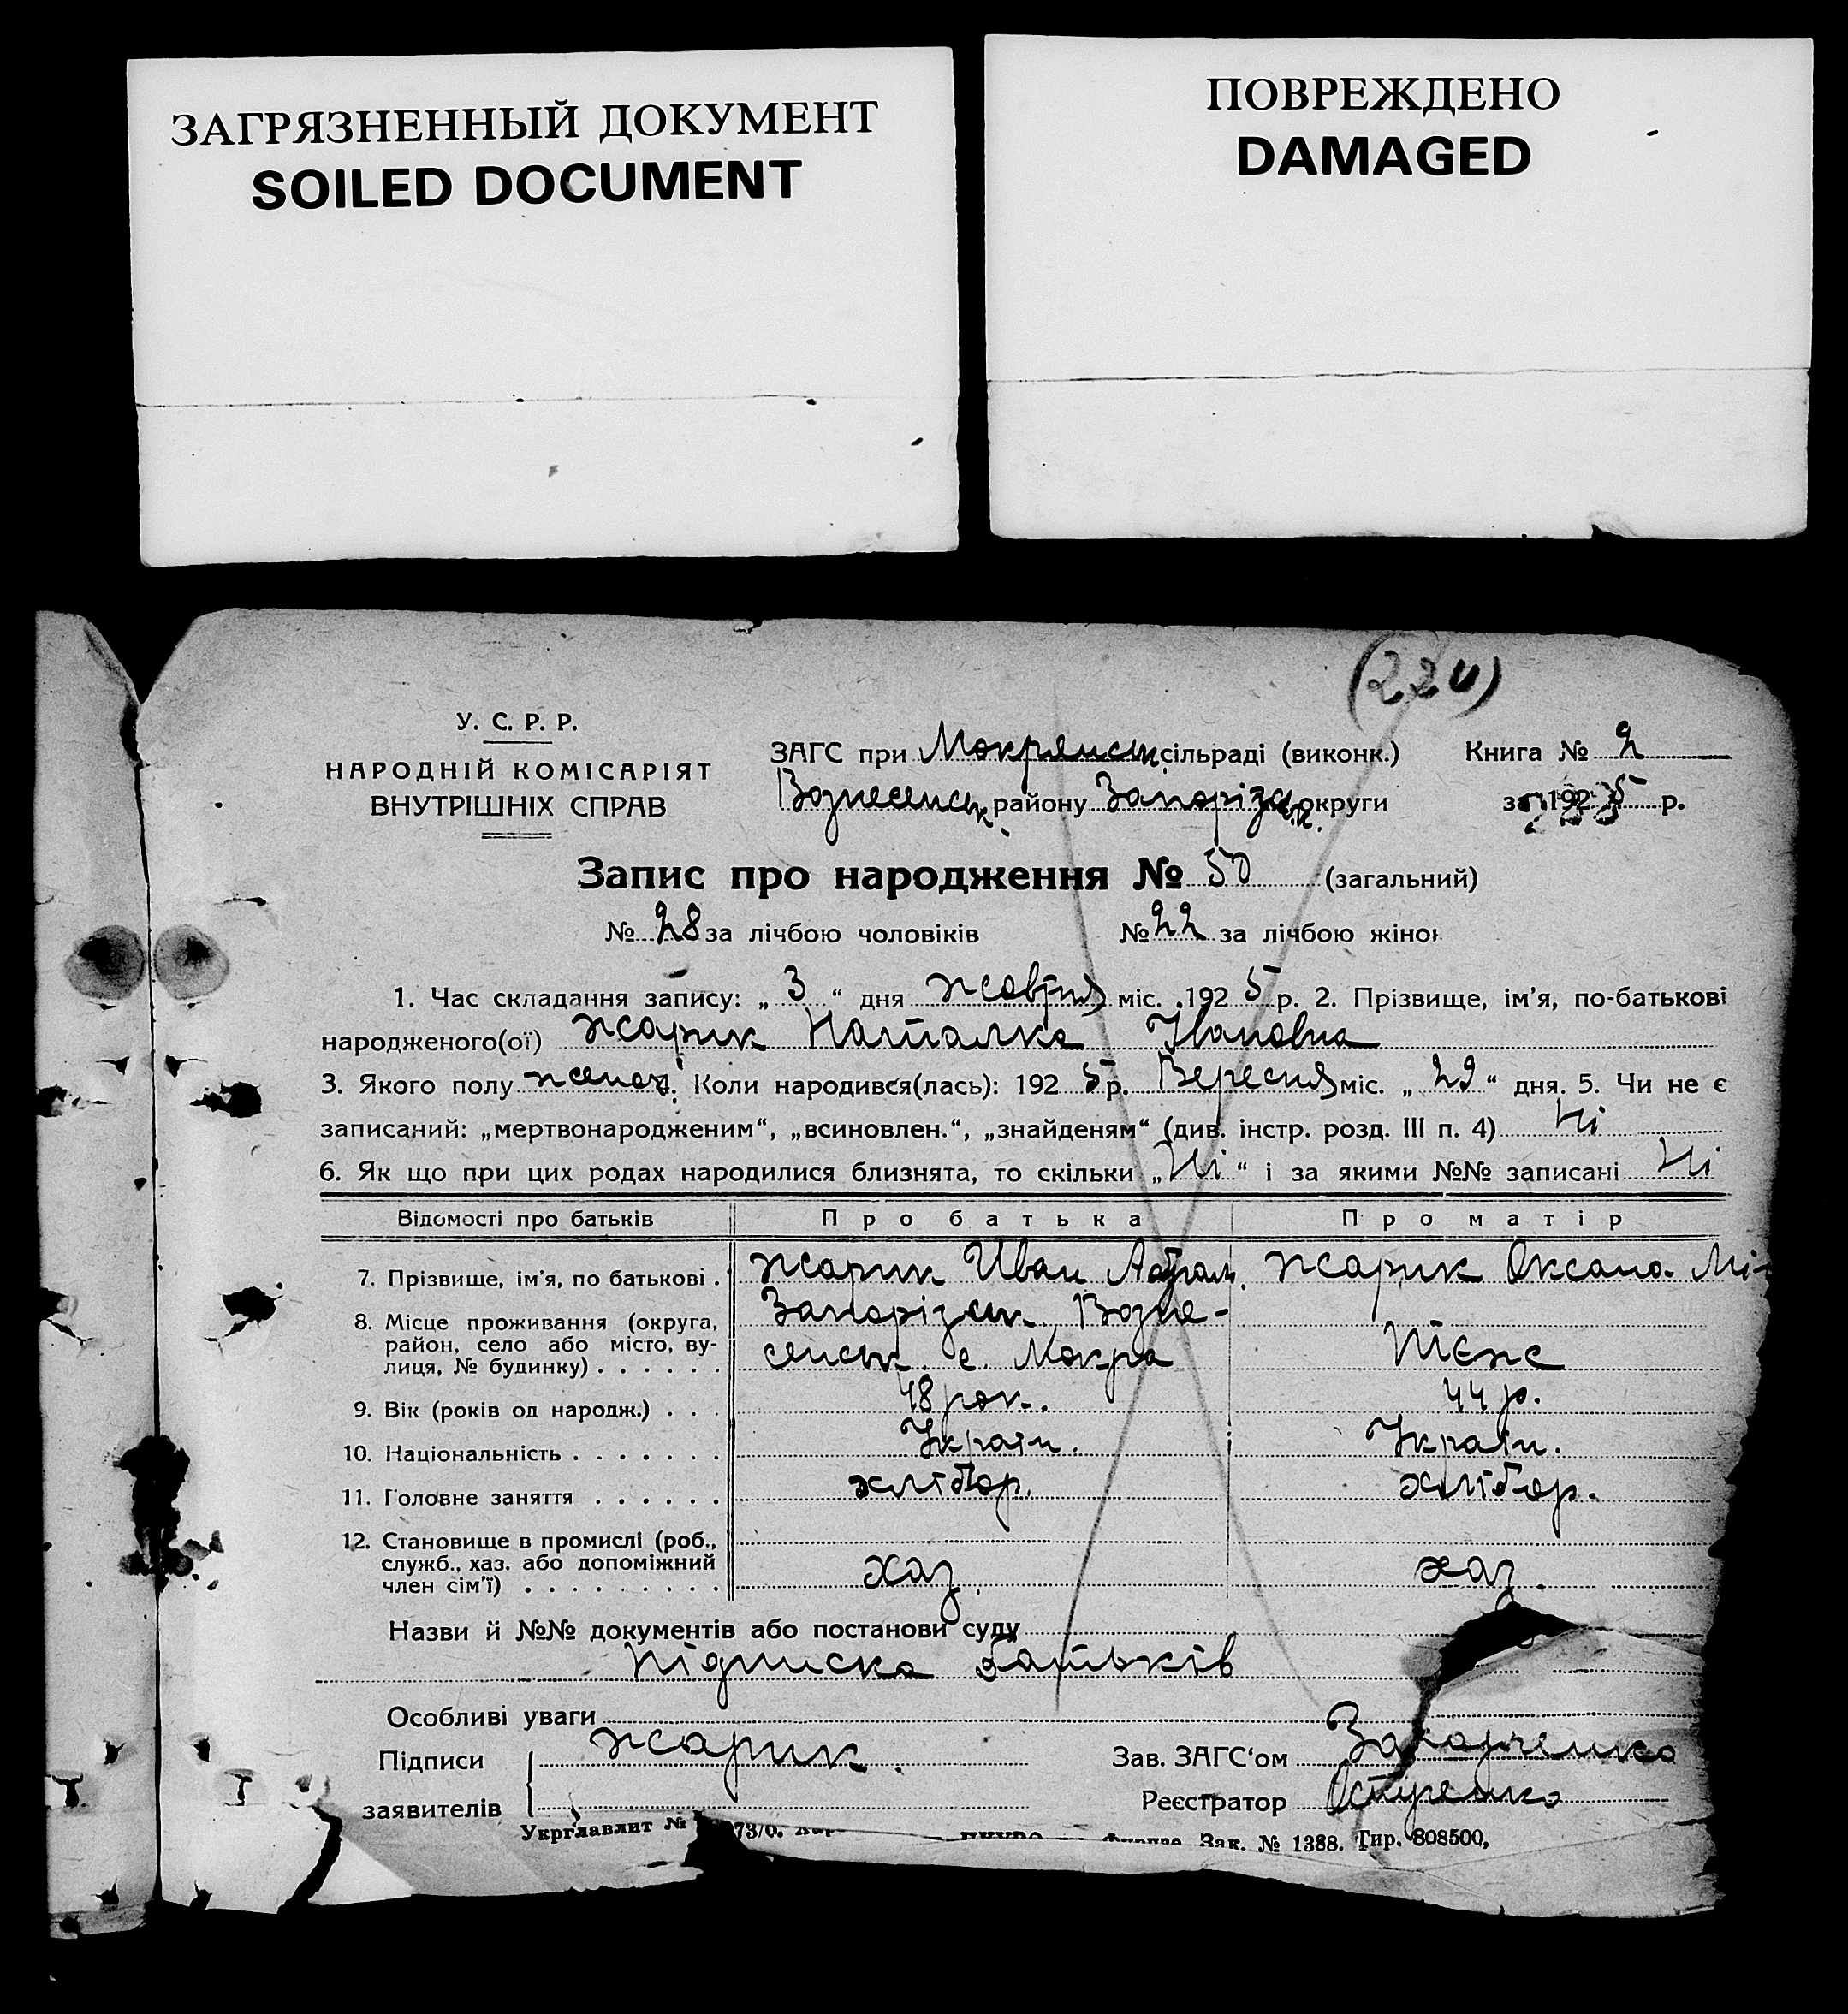 ЗАГРЯЗНЕННЫЙ ДОКУМЕНТ
SOILED DOCUMENT
ПОВРЕЖДЕНО
DAMAGED
(220)
У. С. Р. Р.
НАРОДНІЙ КОМІСАРІЯТ
ВНУТРІШНІХ СПРАВ
ЗАГС при Мокрянськ. сільраді (виконк.) Книга № 2
Вознесенськ. району Запорізьк. округи за 1925 р.
Запис про народження № 50 (загальний)
№ 28 за лічбою чоловіків № 22 за лічбою жінок
1. Час складання запису: „ 3 “ дня жовтня міс. 192 5 р. 2. Прізвище, ім’я, по-батькові
народженого(ої) Жарик Наталка Івановна
3. Якого полу жіноч. 4. Коли народився(лась): 192 5 р. Вересня міс. „ 29 “ дня. 5. Чи не є
записаний: „мертвонародженим“, „всиновлен.“, „знайденям“ (див. інстр. розд. III п. 4) Ні
6. Як що при цих родах народилися близнята, то скільки „ Ні “ і за якими №№ записані Ні
Відомості про батьків Про батька Про матір
7. Прізвище, ім’я, по батькові . Жарик Иван Абрам. Жарик Оксана Мі-
8. Місце проживання (округа, Запорізьк. Возне-
район, село або місто, ву-
лиця, № будинку) . . . . . . сенськ. с. Мокра Тієже
9. Вік (років од народж.) . . . 48 рок. 44 р.
10. Національність . . . . . . . Україн. Україн.
11. Головне заняття . . . . . . хлібор. хлібор.
12. Становище в промислі (роб.,
служб., хаз. або допоміжний
член сім’ї) . . . . . . . . . хаз. хаз.
Назви й №№ документів або постанови суду
Підписка батьків
Особливі уваги
Підписи Жарик Зав. ЗАГС‘ом Захарченко
заявителів Реєстратор
Укрглавліт № 73/0. Зак. № 1388. Тир. 808500,